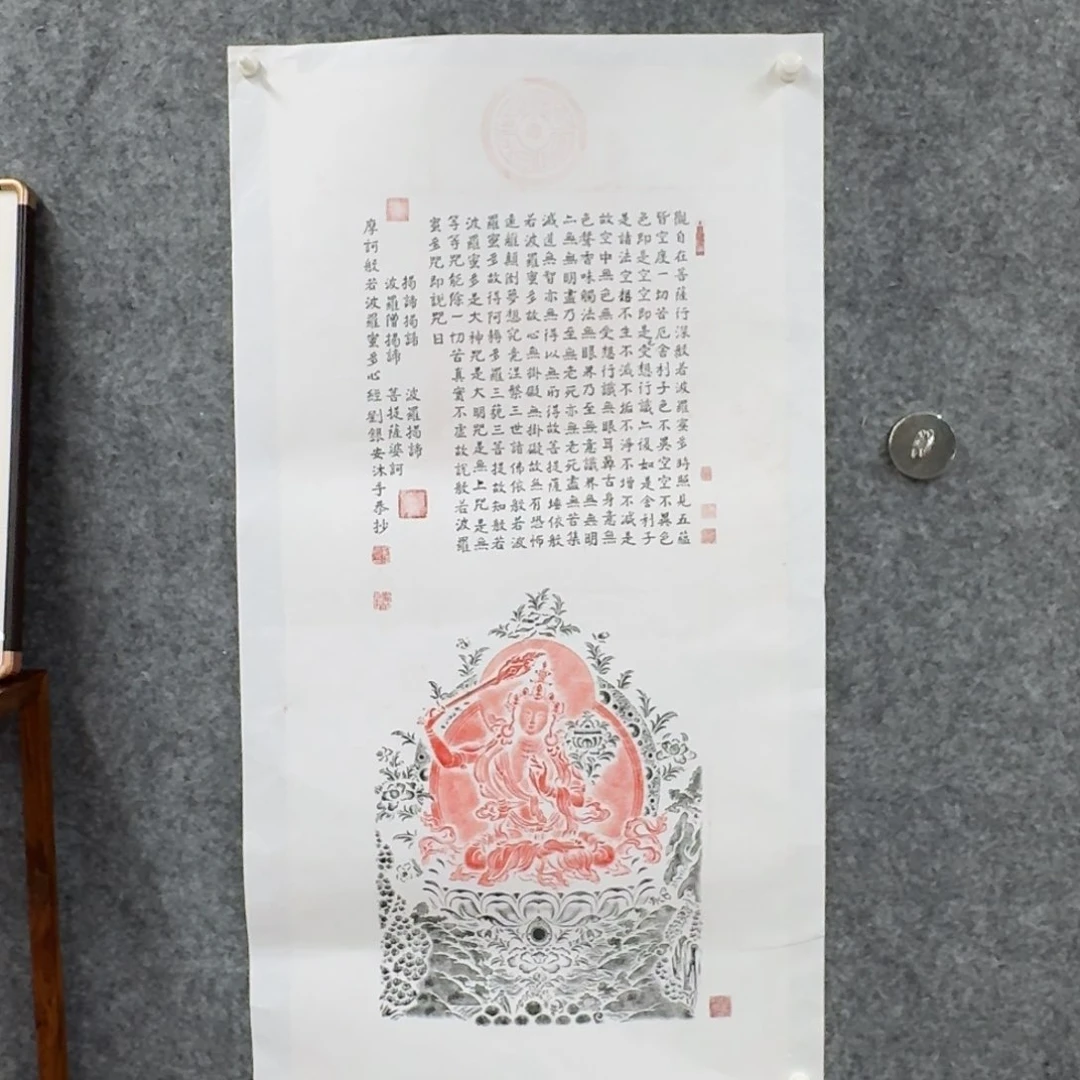 觀自在菩薩行深般若波羅蜜多時照見五蘊
皆空度一切苦厄舍利子色不異空空不異色
色即是空空即是受想行識亦復如是舍利子
是諸法空相不生不滅不垢不淨不增不減是
故空中無色無受想行識無眼耳鼻舌身意無
色聲香味觸法無眼界乃至無意識界無無明
亦無無明盡乃至無老死亦無老死盡無苦集
滅道無智亦無得以無所得故菩提薩埵依般
若波羅蜜多故心無掛礙無掛礙故無有恐怖
遠離顛倒夢想究竟涅槃三世諸佛依般若波
羅蜜多故得阿耨多羅三藐三菩提故知般若
波羅蜜多是大神咒是大明咒是無上咒是無
等等咒能除一切苦真實不虛故說般若波羅
蜜多咒即說咒曰
揭諦揭諦 波羅揭諦
波羅僧揭諦 菩提薩婆訶
摩訶般若波羅蜜多心經 劉銀安沐手恭抄